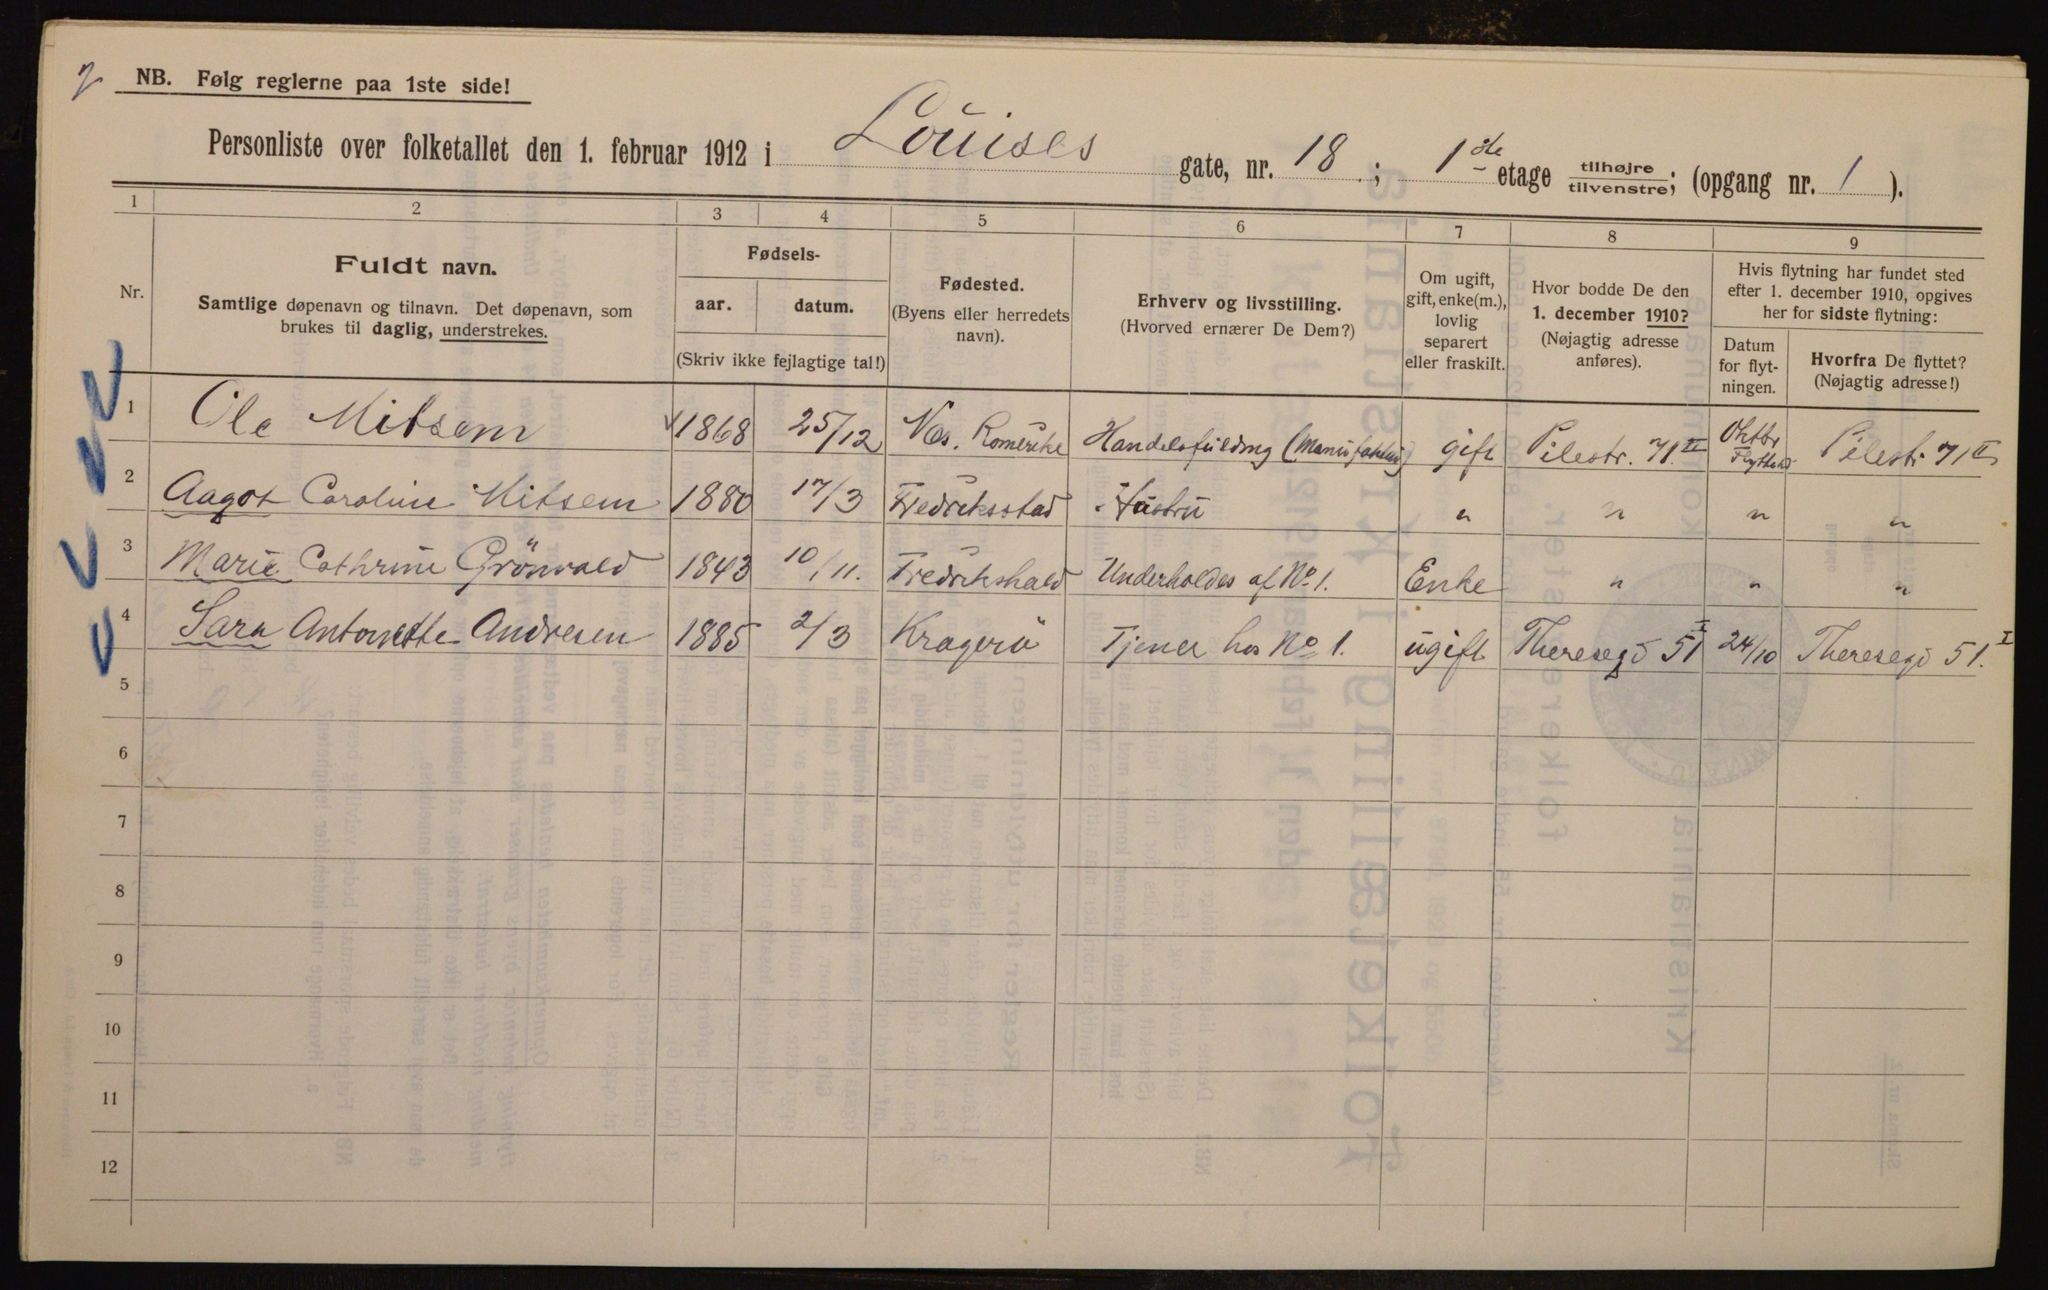 NB. Følg reglerne paa 1ste side!
Personliste over folketallet den 1. februar 1912 i Louises gate, nr. 18 ; 1ste etage tilhøjre tilvenstre; (opgang nr. 1 ).
1 2 3 4 5 6 7 8 9
Nr.
Fuldt navn.
Samtlige døpenavn og tilnavn. Det døpenavn, som
brukes til daglig, understrekes.
Fødsels-
aar. datum.
(Skriv ikke fejlagtige tal!)
Fødested.
(Byens eller herredets
navn).
Erhverv og livsstilling.
(Hvorved ernærer De Dem?)
Om ugift,
gift, enke(m.),
lovlig
separert
eller fraskilt.
Hvor bodde De den
1. december 1910?
(Nøjagtig adresse
anføres).
Hvis flytning har fundet sted
efter 1. december 1910, opgives
her for sidste flytning:
Datum
for flyt-
ningen.
Hvorfra De flyttet?
(Nøjagtig adresse!)
1 Ole Mitsem 1868 25/12 Nes. Romerike gift Pilestr. 71 II Pilestr 71 II
2 Aagot Caroline Mitsem 1880 17/3 Fredriksstad Hustru " " " "
3 Marie Cathrine Grönvold 1843 10/11. Fredrikshald Underholdes af No 1. Enke " " "
4 Sara Antonette Andresen 1885 2/3 Kragerö Tjener hos No 1. ugift Theresegd 51 I 24/10 Theresegd 51. I
5
6
7
8
9
10
11
12